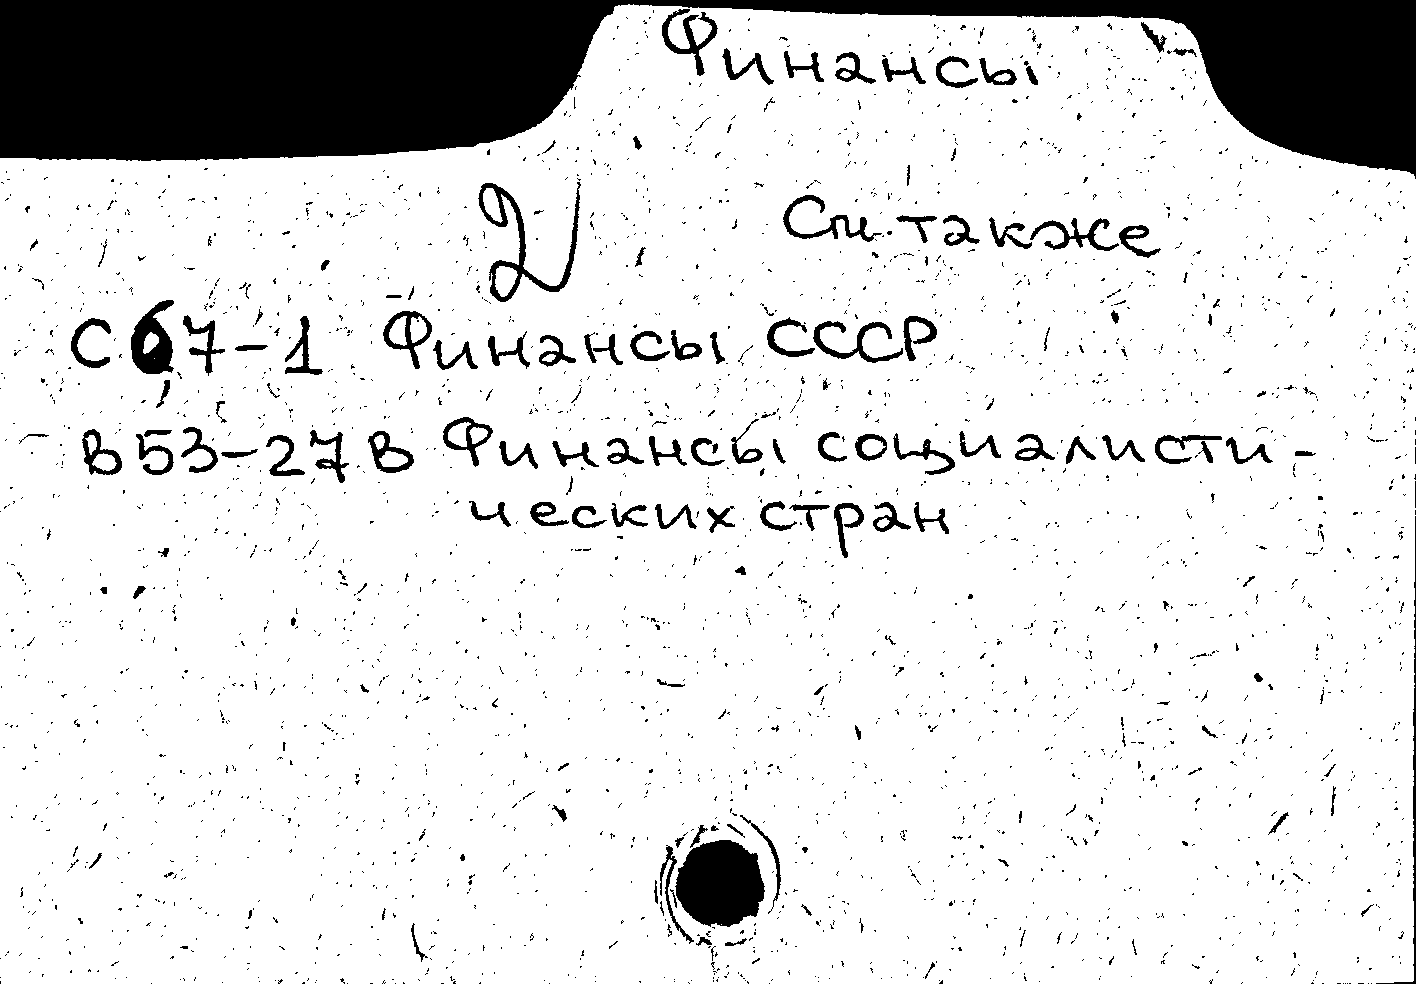 Финансы
См. также
С67-1 Финансы СССР
В53-27в Финансы социалисти-
ческих стран